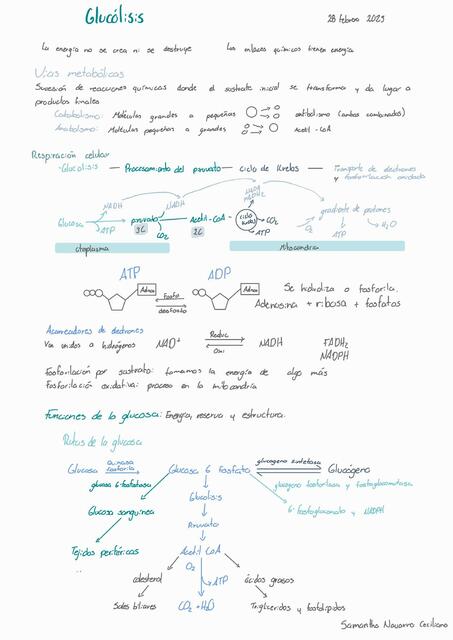 Glucólisis
28 Febrero 2025
La energía no se crea ni se destruye
Los enlaces químicos tienen energía
Vías metabólicas
Sucesión de reacciones químicas donde el sustrato inicial se transforma y da lugar a
productos finales
Catabolismo: Moléculas grandes a pequeñas
anfibolismo (ambas combinadas)
Anabolismo: Moléculas pequeñas a grandes
Acetil-CoA
Respiración celular
Glucólisis — Procesamiento del piruvato — ciclo de Krebs — Transporte de electrones
y fosforilación oxidada
NADH
NADH
NADH
FADH2
Glucosa
piruvato
Acetil-CoA
ciclo Krebs
CO2
ATP
gradiente de protones
O2
ATP
H2O
3C
CO2
2C
citoplasma
Mitocondria
ATP
ADP
Adnos
Adnos
Fosfo
desfosfo
Se hidroliza o fosforila.
Adenosina + ribosa + fosfatos
Acarreadores de electrones
Van unidos a hidrógenos
NAD+
Reduc
Oxi
NADH
FADH2
NADPH
Fosforilación por sustrato: tomamos la energía de algo más
Fosforilación oxidativa: proceso en la mitocondria
Funciones de la glucosa: Energía, reserva y estructura.
Rutas de la glucosa
Glucosa
Quinasa
fosforila
Glucosa 6 Fosfato
glucógeno sintetasa
Glucógeno
glucosa 6-fosfatasa
glucógeno fosforilasa y fosfoglucomutasa
Glucosa sanguínea
Glucólisis
6-fosfogluconato y NADPH
Piruvato
Tejidos periféricos
Acetil CoA
O2
colesterol
ATP
ácidos grasos
Sales biliares
CO2 + H2O
Triglicéridos y fosfolípidos
Samantha Navarro Ceciliano